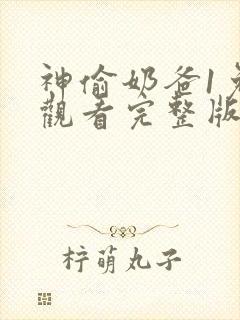 神偷奶爸1免
觀看完整版
柠萌丸子